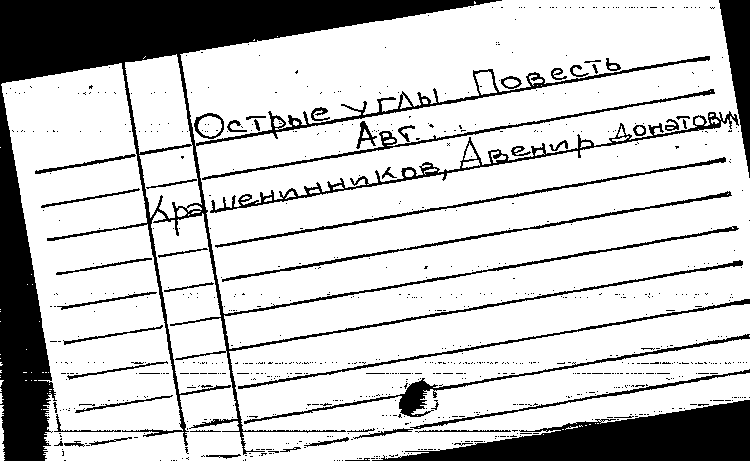 Острые углы Повесть
Авт.:
Крашенинников, Авенир Донатович